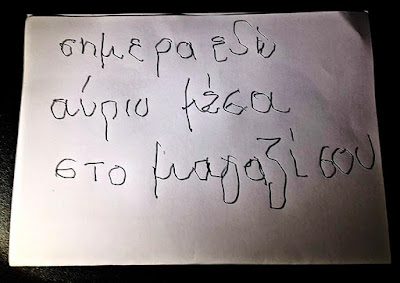 σημερα εδώ
αύριο μέσα
στο μαγαζί σου